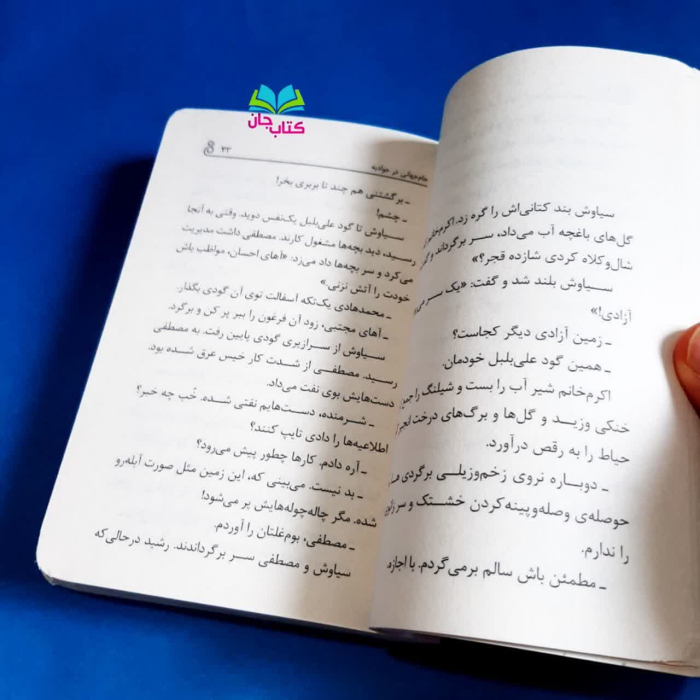 کتاب جان
سیاوش بند کتانی‌اش را گره زد. اکرم‌خانم
گل‌های باغچه آب می‌داد، سر برگرداند و
شال‌وکلاه کردی شازده قجر؟»
سیاوش بلند شد و گفت: «یک سر
آزادی!»
ـ زمین آزادی دیگر کجاست؟
ـ همین گود علی‌بلبل خودمان.
اکرم‌خانم شیر آب را بست و شیلنگ را
خنکی وزید و گل‌ها و برگ‌های درخت انجیر
حیاط را به رقص درآورد.
ـ دوباره نروی زخم‌وزیلی برگردی
حوصله‌ی وصله‌وپینه‌کردن خشتک و سر
را ندارم.
ـ مطمئن باش سالم برمی‌گردم. با اجازه
جام‌جهانی در جوادیه
۲۳
ـ برگشتنی هم چند تا بربری بخر!
ـ چشم!
سیاوش تا گود علی‌بلبل یک‌نفس دوید. وقتی به آنجا
رسید، دید بچه‌ها مشغول کارند. مصطفی داشت مدیریت
می‌کرد و سر بچه‌ها داد می‌زد: «آهای احسان، مواظب باش
خودت را آتش نزنی.»
ـ محمدهادی یک‌تکه اسفالت توی آن گودی بگذار.
ـ آهای مجتبی، زود آن فرغون را ببر پر کن و برگرد.
سیاوش از سرازیری گودی پایین رفت. به مصطفی
رسید. مصطفی از شدت کار خیس عرق شده بود.
دست‌هایش بوی نفت می‌داد.
ـ شرمنده، دست‌هایم نفتی شده. خُب چه خبر؟
اطلاعیه‌ها را دادی تایپ کنند؟
ـ آره دادم. کارها چطور پیش می‌رود؟
ـ بد نیست. می‌بینی که، این زمین مثل صورت آبله‌رو
شده. مگر چاله‌چوله‌هایش پر می‌شود!
ـ مصطفی، بوم‌غلتان را آوردم.
سیاوش و مصطفی سر برگرداندند. رشید درحالی‌که